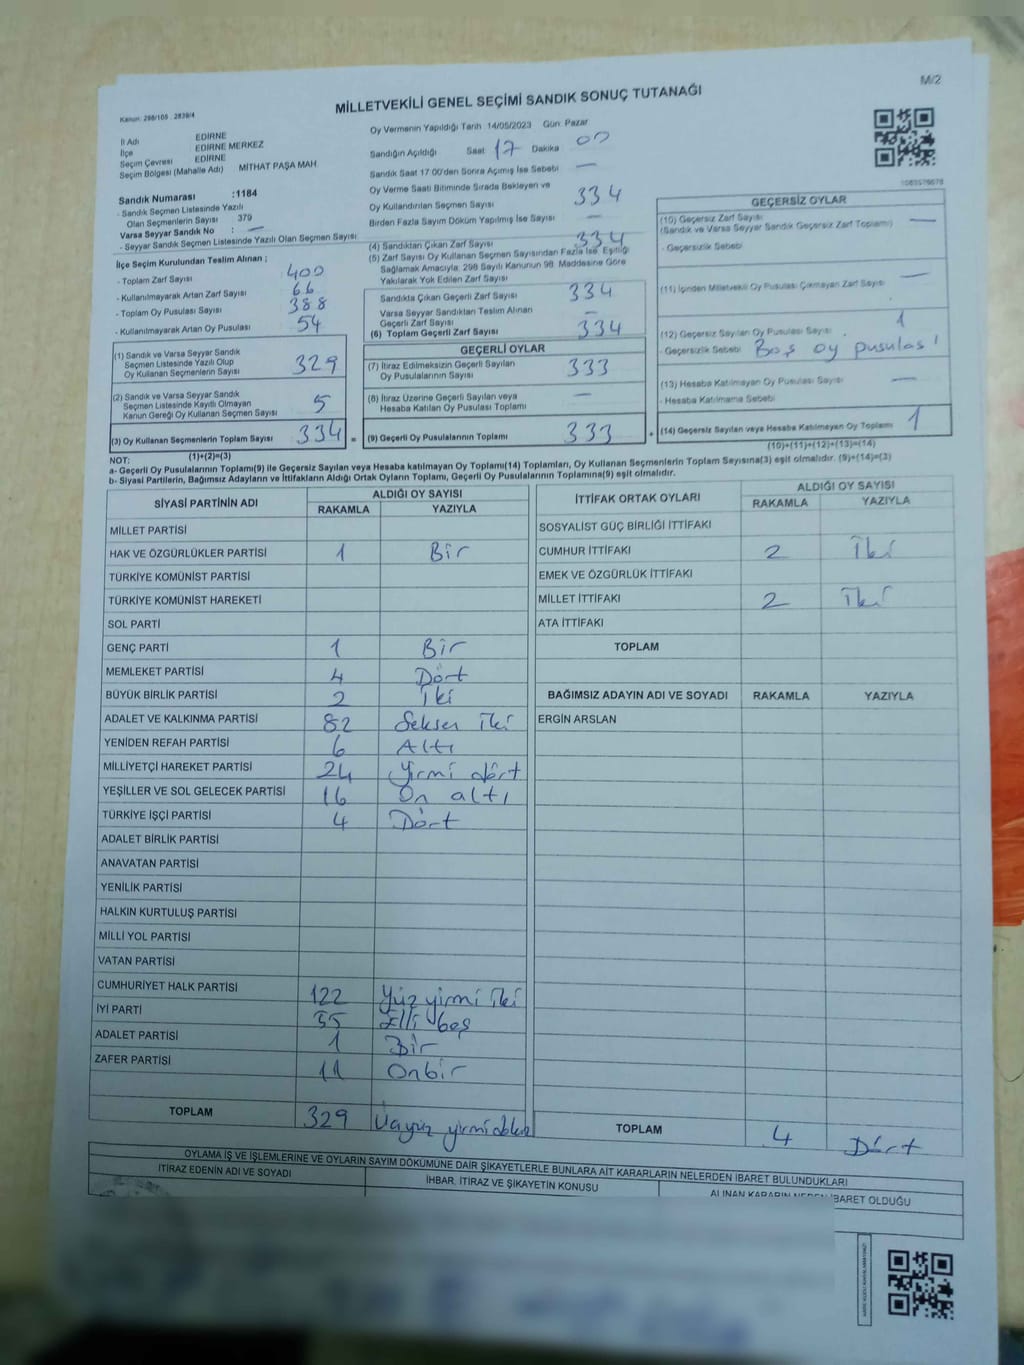 M/2
MİLLETVEKİLİ GENEL SEÇİMİ SANDIK SONUÇ TUTANAĞI
Kanun: 298/105 . 2839/4
İl Adı EDİRNE
İlçe EDİRNE MERKEZ
Seçim Çevresi EDİRNE
Seçim Bölgesi (Mahalle Adı) MİTHAT PAŞA MAH
Sandık Numarası :1184
- Sandık Seçmen Listesinde Yazılı
Olan Seçmenlerin Sayısı : 379
Varsa Seyyar Sandık No : —
- Seyyar Sandık Seçmen Listesinde Yazılı Olan Seçmen Sayısı:
İlçe Seçim Kurulundan Teslim Alınan ;
- Toplam Zarf Sayısı 400
- Kullanılmayarak Artan Zarf Sayısı 66
- Toplam Oy Pusulası Sayısı 388
- Kullanılmayarak Artan Oy Pusulası 54
(1) Sandık ve Varsa Seyyar Sandık
Seçmen Listesinde Yazılı Olup
Oy Kullanan Seçmenlerin Sayısı 329
(2) Sandık ve Varsa Seyyar Sandık
Seçmen Listesinde Kayıtlı Olmayan
Kanun Gereği Oy Kullanan Seçmen Sayısı 5
(3) Oy Kullanan Seçmenlerin Toplam Sayısı 334 =
(1)+(2)=(3)
Oy Vermenin Yapıldığı Tarih 14/05/2023 Gün: Pazar
Sandığın Açıldığı Saat 17 Dakika 00
Sandık Saat 17:00'den Sonra Açımış İse Sebebi —
Oy Verme Saati Bitiminde Sırada Bekleyen ve
Oy Kullandırılan Seçmen Sayısı 334
Birden Fazla Sayım Döküm Yapılmış İse Sayısı —
(4) Sandıktan Çıkan Zarf Sayısı 334
(5) Zarf Sayısı Oy Kullanan Seçmen Sayısından Fazla İse, Eşitliği
Sağlamak Amacıyla, 298 Sayılı Kanunun 98. Maddesine Göre
Yakılarak Yok Edilen Zarf Sayısı
Sandıkta Çıkan Geçerli Zarf Sayısı 334
Varsa Seyyar Sandıktan Teslim Alınan
Geçerli Zarf Sayısı —
(6) Toplam Geçerli Zarf Sayısı 334
GEÇERLİ OYLAR
(7) İtiraz Edilmeksizin Geçerli Sayılan
Oy Pusulalarının Sayısı 333
(8) İtiraz Üzerine Geçerli Sayılan veya
Hesaba Katılan Oy Pusulası Toplamı —
(9) Geçerli Oy Pusulalarının Toplamı 333 +
1083576678
GEÇERSİZ OYLAR
(10) Geçersiz Zarf Sayısı —
(Sandık ve Varsa Seyyar Sandık Geçersiz Zarf Toplamı)
- Geçersizlik Sebebi
(11) İçinden Milletvekili Oy Pusulası Çıkmayan Zarf Sayısı —
(12) Geçersiz Sayılan Oy Pusulası Sayısı 1
- Geçersizlik Sebebi Boş oy pusulası
(13) Hesaba Katılmayan Oy Pusulası Sayısı —
- Hesaba Katılmama Sebebi
(14) Geçersiz Sayılan veya Hesaba Katılmayan Oy Toplamı 1
(10)+(11)+(12)+(13)=(14)
NOT:
a- Geçerli Oy Pusulalarının Toplamı(9) ile Geçersiz Sayılan veya Hesaba katılmayan Oy Toplamı(14) Toplamları, Oy Kullanan Seçmenlerin Toplam Sayısına(3) eşit olmalıdır. (9)+(14)=(3)
b- Siyasi Partilerin, Bağımsız Adayların ve İttifakların Aldığı Ortak Oyların Toplamı, Geçerli Oy Pusulalarının Toplamına(9) eşit olmalıdır.
SİYASİ PARTİNİN ADI ALDIĞI OY SAYISI
RAKAMLA YAZIYLA
MİLLET PARTİSİ
HAK VE ÖZGÜRLÜKLER PARTİSİ 1 Bir
TÜRKİYE KOMÜNİST PARTİSİ
TÜRKİYE KOMÜNİST HAREKETİ
SOL PARTİ
GENÇ PARTİ 1 Bir
MEMLEKET PARTİSİ 4 Dört
BÜYÜK BİRLİK PARTİSİ 2 İki
ADALET VE KALKINMA PARTİSİ 82 Seksen İki
YENİDEN REFAH PARTİSİ 6 Altı
MİLLİYETÇİ HAREKET PARTİSİ 24 Yirmi dört
YEŞİLLER VE SOL GELECEK PARTİSİ 16 On altı
TÜRKİYE İŞÇİ PARTİSİ 4 Dört
ADALET BİRLİK PARTİSİ
ANAVATAN PARTİSİ
YENİLİK PARTİSİ
HALKIN KURTULUŞ PARTİSİ
MİLLİ YOL PARTİSİ
VATAN PARTİSİ
CUMHURİYET HALK PARTİSİ 122 Yüz yirmi iki
İYİ PARTİ 55 Elli beş
ADALET PARTİSİ 1 Bir
ZAFER PARTİSİ 11 Onbir
TOPLAM 329 yirmi
İTTİFAK ORTAK OYLARI ALDIĞI OY SAYISI
RAKAMLA YAZIYLA
SOSYALİST GÜÇ BİRLİĞİ İTTİFAKI
CUMHUR İTTİFAKI 2 İki
EMEK VE ÖZGÜRLÜK İTTİFAKI
MİLLET İTTİFAKI 2 İki
ATA İTTİFAKI
TOPLAM
BAĞIMSIZ ADAYIN ADI VE SOYADI RAKAMLA YAZIYLA
ERGİN ARSLAN
TOPLAM 4 Dört
OYLAMA İŞ VE İŞLEMLERİNE VE OYLARIN SAYIM DÖKÜMÜNE DAİR ŞİKAYETLERLE BUNLARA AİT KARARLARIN NELERDEN İBARET BULUNDUKLARI
İTİRAZ EDENİN ADI VE SOYADI
İHBAR, İTİRAZ VE ŞİKAYETİN KONUSU
ALINAN KARARIN NEDEN İBARET OLDUĞU